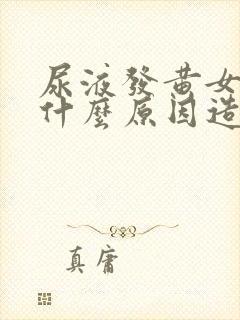 尿液發黃女
什麼原因造
真庸